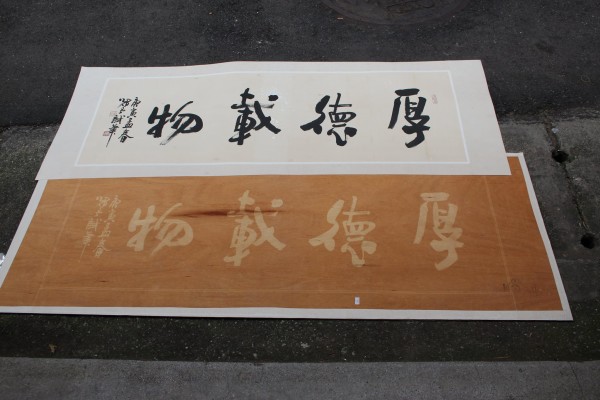 厚德載物
庚寅孟春
厚德載物
庚寅孟春